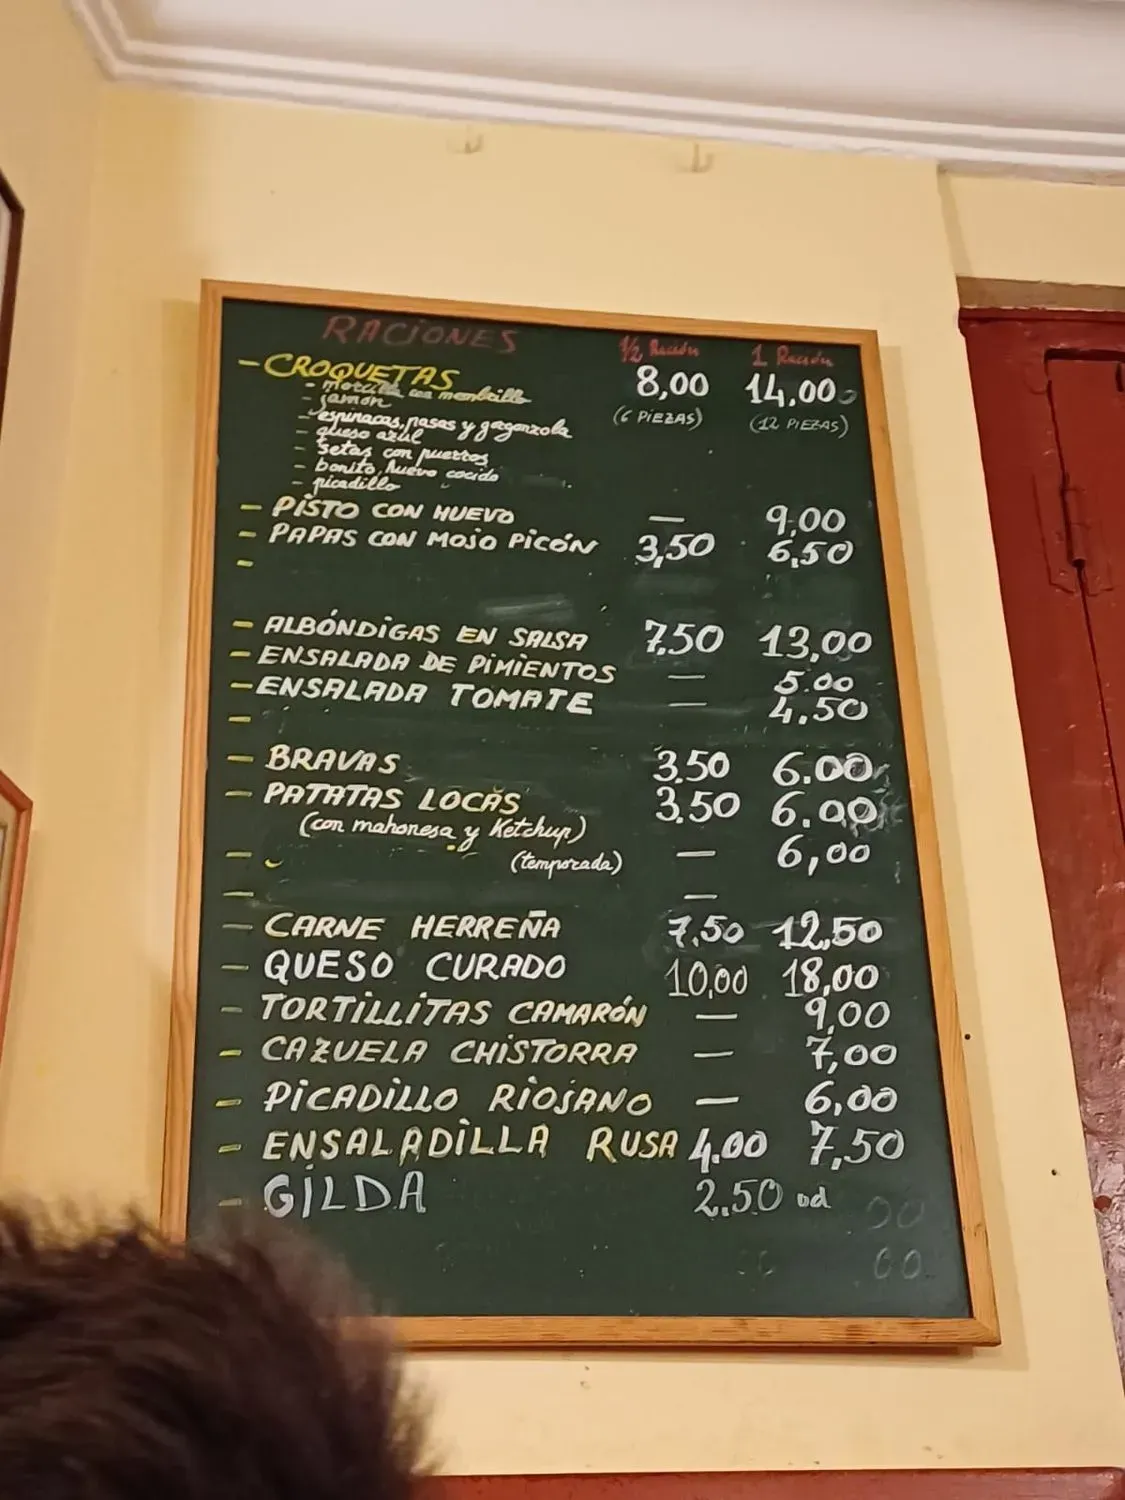 RACIONES 1/2 Ración 1 Ración
- CROQUETAS 8,00 14,00
- morcilla con membrillo (6 PIEZAS) (12 PIEZAS)
- jamón
- espinacas, pasas y gorgonzola
- queso azul
- setas con puerros
- bonito, huevo cocido
- picadillo
- PISTO CON HUEVO — 9,00
- PAPAS CON MOJO PICÓN 3,50 6,50
-
- ALBÓNDIGAS EN SALSA 7.50 13,00
- ENSALADA DE PIMIENTOS — 5.00
- ENSALADA TOMATE — 4.50
-
- BRAVAS 3.50 6.00
- PATATAS LOCAS 3.50 6.00
(con mahonesa y Ketchup)
- (temporada) — 6,00
- —
- CARNE HERREÑA 7,50 12,50
- QUESO CURADO 10,00 18,00
- TORTILLITAS CAMARÓN — 9,00
- CAZUELA CHISTORRA — 7,00
- PICADILLO RIOJANO — 6,00
- ENSALADILLA RUSA 4.00 7,50
- GILDA 2.50 ud